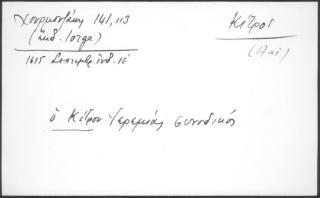 Χουρμουζάκη 141, 113
(ἔκδ. Iorga)
1615 Σεπτεμβρ. ἰνδ. ιέ
Κίτρος
ὁ Κίτρου Ἱερεμίας συνοδικός